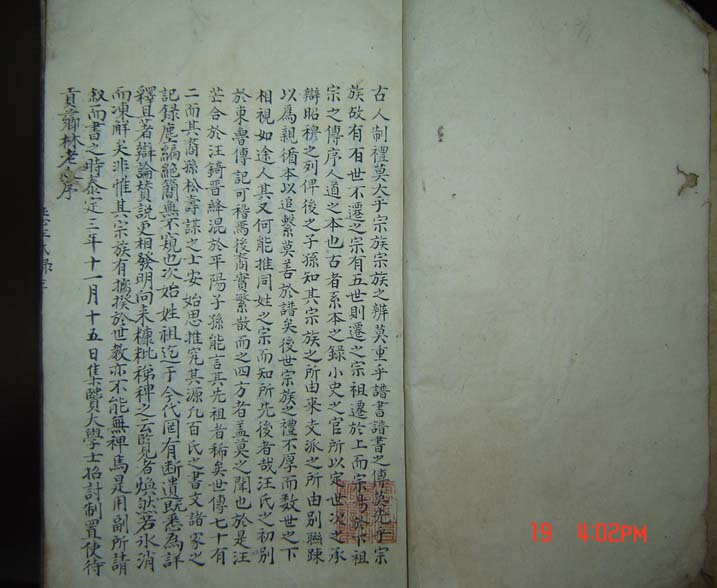 古人制禮莫大乎宗族宗族之辨莫重乎譜書譜書之傳莫先乎宗
族故有百世不遷之宗有五世則遷之宗祖遷於上而宗易於下祖
宗之傳序人道之本也古者系本之錄小史之官所以定世次之承
辯昭穆之列俾後之子孫知其宗族之所由來支派之所由別聯踈
以為親循本以追繫莫善於譜矣後世宗族之禮不厚而数世之下
相視如途人其又何能推同姓之宗而知所先後者哉汪氏之初別
於東魯傳記可稽焉後裔實繁散而之四方者盖莫之聞也於是汪
芒合於汪錡晋絳混於平陽子孫能言其先祖者稀矣世傳七十有
二而其裔孫松壽謀之士安始思推究其源凢百氏之書文諸家之
記録塵編絶簡無不窺也次始姓祖迄于今代罔有断遺既悉為詳
釋且著辯論賛説更相發明向来糠粃稊稗之云覧者煥然若氷消
而凍觧矣非惟其宗族有攄揆於世教亦不能無裨焉是用副所請
叙而書之時泰定三年十一月十五日集賢大學士招討制置使待
貢章卿林老
序
19 4:02PM